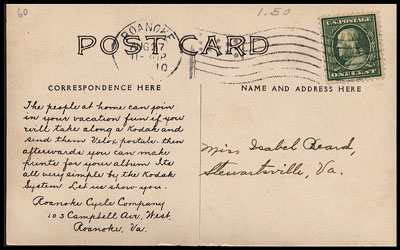 60
1.50
POST CARD
ROANOKE
UG 27
10
U.S. POSTAGE
ONE CENT
CORRESPONDENCE HERE
NAME AND ADDRESS HERE
The people at home can join
in your vacation fun if you
will take along a Kodak and
send them Velox postals. then
afterwards you can make
prints for your album. Its
all very simple by the Kodak
System Let us show you.
Roanoke Cycle Company
103 Campbell Ave, West.
Roanoke, Va.
Miss Isabel Beard,
Stewartsville, Va.